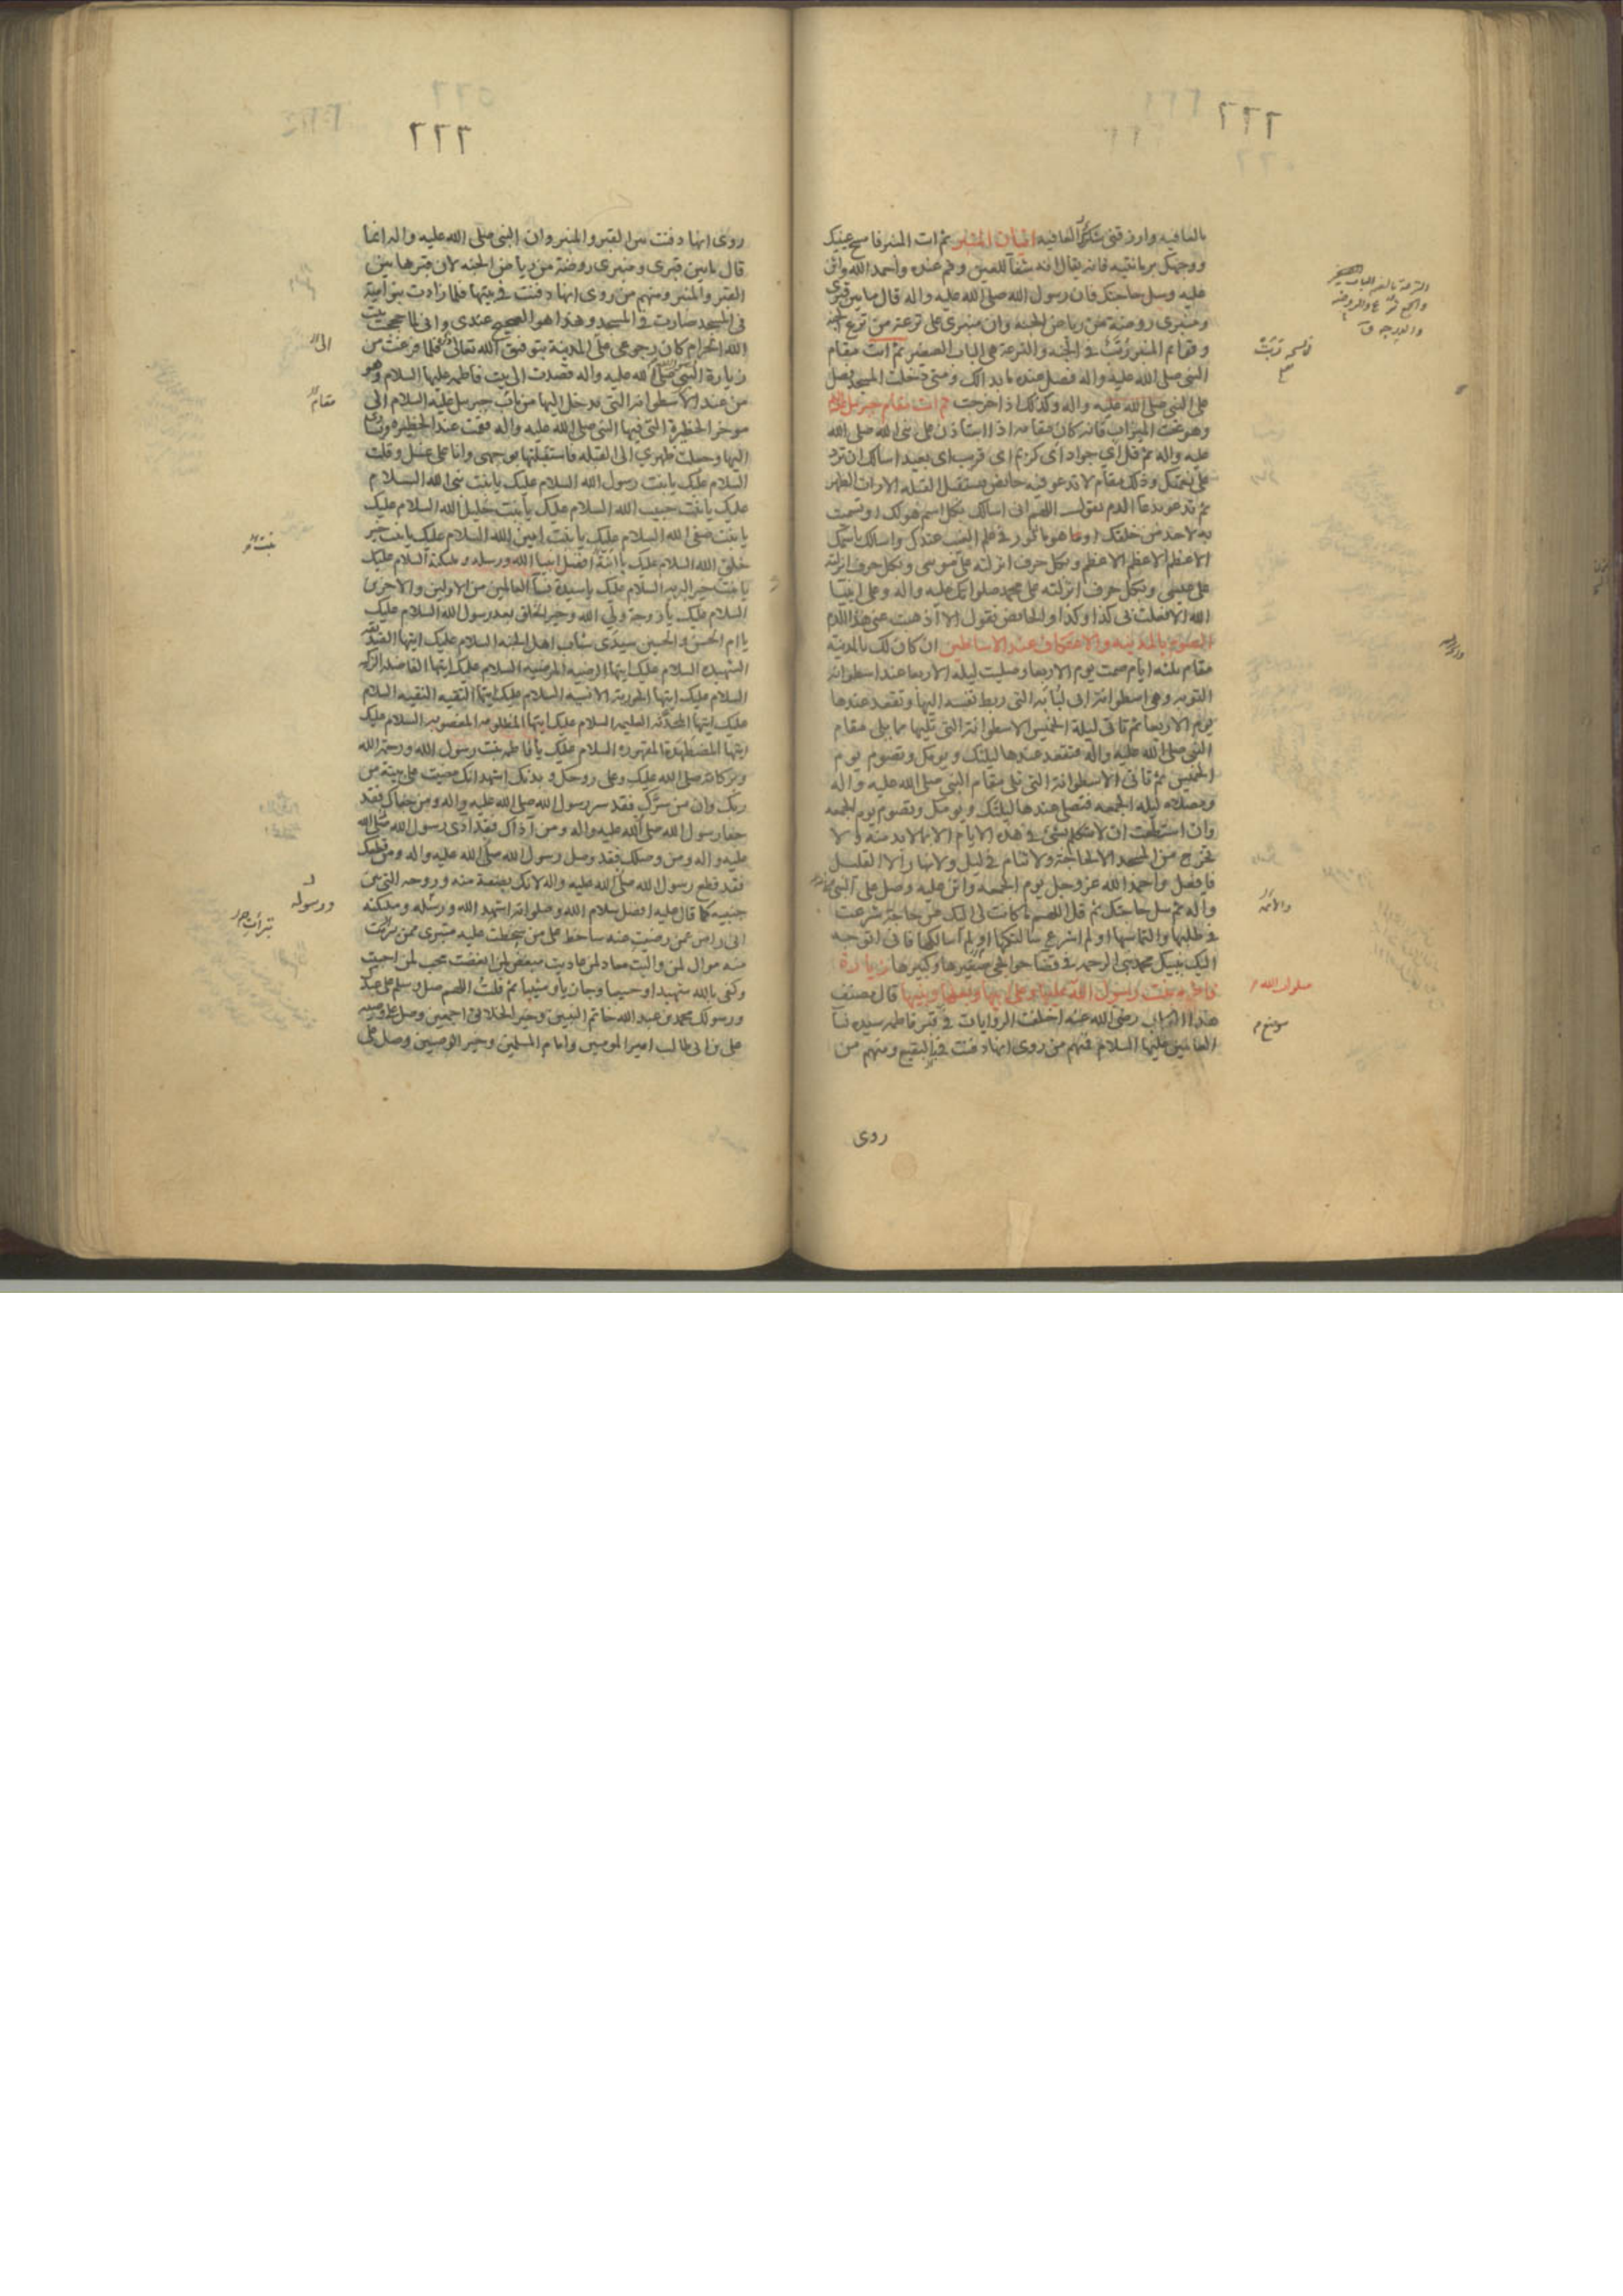 ٢٢٢
بالعافيه وارزقنى شكر العافيه اتيان المنبر ثم ات المنبر فامسح عينيك
ووجهك برمانتيه فانه يقال انه شفآ للعين وقم عنده واحمد الله واثن
عليه وسل حاجتك فان رسول الله صلى الله عليه واله قال ما بين قبرى
ومنبرى روضة من رياض الجنه وان منبرى على ترعة من ترع الجنه
وقوائم المنبر رتبت فى الجنه والترعة هى الباب الصغير ثم ائت مقام
النبى صلى الله عليه واله فصل عنده ما بدا لك ومتى دخلت المسجد فصل
على النبى صلى الله عليه واله وكذلك اذا خرجت ثم ات مقام جبرئيل
وهو تحت الميزاب فانه كان مقامه اذا استاذن على نبى الله صلى الله
عليه واله ثم قل اى جواد اى كريم اى قريب اى بعيد اسالك ان ترد
على نعمتك وذلك مقام لا تدعو فيه حائض مستقبل القبله الا رات الطهر
ثم تدعو بدعآ الدم تقول اللهم انى اسالك بكل اسم هو لك او تسميت
به لاحد من خلقك او ما هو ماثور فى علم الغيب عندك واسالك باسمك
الاعظم الاعظم الاعظم وبكل حرف انزلته على موسى وبكل حرف انزلته
على عيسى وبكل حرف انزلته على محمد صلواتك عليه واله وعلى انبيآ
الله الا فعلت بى كذا وكذا والحائض تقول الا اذهبت عنى هذا الدم
الصوم بالمدينه والاعتكاف عند الاساطين ان كان لك بالمدينه
مقام ثلثه ايام صمت يوم الاربعا وصليت ليله الاربعا عند اسطوانه
التوبه وهى اسطوانة ابى لبابه التى ربط نفسه اليها وتقعد عندها
يوم الاربعا ثم تاتى ليلة الخميس الاسطوانة التى تليها مما يلى مقام
النبى صلى الله عليه واله فتقعد عندها ليلتك ويومك وتصوم يوم
الخميس ثم تاتى الاسطوانة التى تلى مقام النبى صلى الله عليه واله
ومصلاه ليلة الجمعه فتصلى عندها ليلتك ويومك وتصوم يوم الجمعه
وان استطعت ان لا تتكلم بشئ فى هذه الايام الا بما لا بد منه ولا
تخرج من المسجد الا لحاجة ولا تنام فى ليل ولا نهار الا القليل
فافعل واحمد الله عز وجل يوم الجمعه واثن عليه وصل على النبى
واله ثم سل حاجتك ثم قل اللهم ما كانت لى اليك من حاجة شرعت
فى طلبها والتماسها او لم اشرع سالتكها او لم اسالكها فانى اتوجه
اليك بنبيك محمد نبى الرحمه فى قضآ حوائجى صغيرها وكبيرها زيارة
فاطمه بنت رسول الله عليها وعلى ابيها وبعلها وبنيها قال مصنف
هذا الكتاب رضى الله عنه اختلفت الروايات فى قبر فاطمه سيده نسآ
العالمين عليها السلام فمنهم من روى انها دفنت فى البقيع ومنهم من
روى
والائمه
صلوات الله
موضع
٢٢٢
روى انها دفنت بين القبر والمنبر وان النبى صلى الله عليه واله انما
قال ما بين قبرى ومنبرى روضة من رياض الجنه لان قبرها بين
القبر والمنبر ومنهم من روى انها دفنت فى بيتها فلما زادت بنو امية
فى المسجد صارت فى المسجد وهذا هو الصحيح عندى وانى لما حججت بيت
الله الحرام كان رجوعى على المدينة بتوفيق الله تعالى فلما فرغت من
زيارة النبى صلى الله عليه واله قصدت الى بيت فاطمه عليها السلام وهو
من عند الاسطوانة التى تدخل اليها من باب جبرئيل عليه السلام الى
موخر الحظيرة التى فيها النبى صلى الله عليه واله فقمت عند الحظيره ويسارى
اليها وجعلت ظهرى الى القبله فاستقبلتها بوجهى وانا على غسل وقلت
السلام عليك يا بنت رسول الله السلام عليك يا بنت نبى الله السلام
عليك يا بنت حبيب الله السلام عليك يا بنت خليل الله السلام عليك
يا بنت صفى الله السلام عليك يا بنت امين الله السلام عليك يا بنت خير
خلق الله السلام عليك يا ابنة افضل انبيآ الله ورسله وملئكته السلام عليك
يا بنت خير البريه السلام عليك يا سيدة نسآ العالمين من الاولين والاخرين
السلام عليك يا زوجة ولى الله وخير الخلق بعد رسول الله السلام عليك
يا ام الحسن والحسين سيدى شباب اهل الجنه السلام عليك ايتها الصديقه
الشهيده السلام عليك ايتها الرضيه المرضيه السلام عليك ايتها الفاضله الزكيه
السلام عليك ايتها الحوريه الانسيه السلام عليك ايتها التقيه النقيه السلام
عليك ايتها المحدثه العليمه السلام عليك ايتها المظلومه المغصوبه السلام عليك
ايتها المضطهدة المقهوره السلام عليك يا فاطمه بنت رسول الله ورحمة الله
وبركاته صلى الله عليك وعلى روحك وبدنك اشهد انك مضيت على بينة من
ربك وان من سرك فقد سر رسول الله صلى الله عليه واله ومن جفاك فقد
جفا رسول الله صلى الله عليه واله ومن آذاك فقد اذى رسول الله صلى الله
عليه واله ومن وصلك فقد وصل رسول الله صلى الله عليه واله ومن قطعك
فقد قطع رسول الله صلى الله عليه واله لانك بضعة منه وروحه التى بين
جنبيه كما قال عليه افضل سلام الله وصلواته اشهد الله ورسله وملئكته
انى راض عمن رضيت عنه ساخط على من سخطت عليه متبرى ممن تبرئت
منه موال لمن واليت معاد لمن عاديت مبغض لمن ابغضت محب لمن احببت
وكفى بالله شهيدا وحسيبا وجازيا ومثيبا ثم قلت اللهم صل وسلم على عبدك
ورسولك محمد بن عبد الله خاتم النبيين وخير الخلائق اجمعين وصل على وصيه
على بن ابى طالب امير المومنين وامام المسلمين وخير الوصيين وصل على
الى
مقام
ورسوله